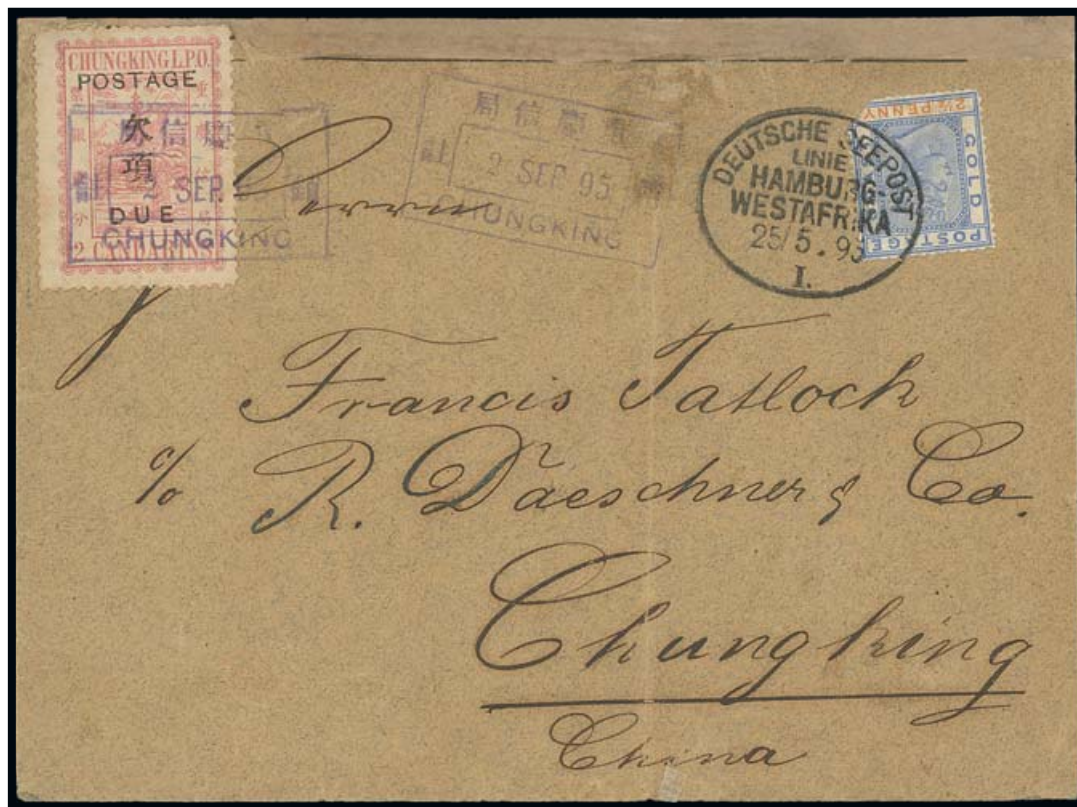 CHUNGKING L.P.O.
POSTAGE
欠
項
DUE
2 CANDARINS
慶信
2 SEP.
CHUNGKING
重慶信局
2 SEP 95
CHUNGKING
DEUTSCHE SEEPOST
LINIE
HAMBURG-
WESTAFRIKA
25/5.95
I.
2½ PENNY
GOLD
POSTAGE
Herrn
Francis Tatlock
c/o R. Daeschner & Co.
Chungking
China